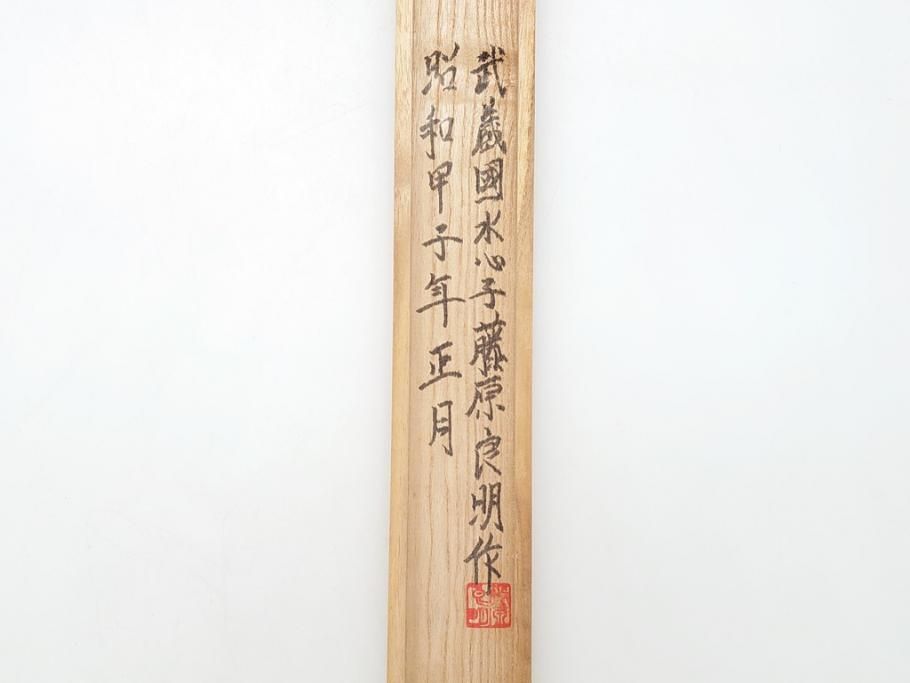 武蔵國水心子藤原良明作
昭和甲子年正月